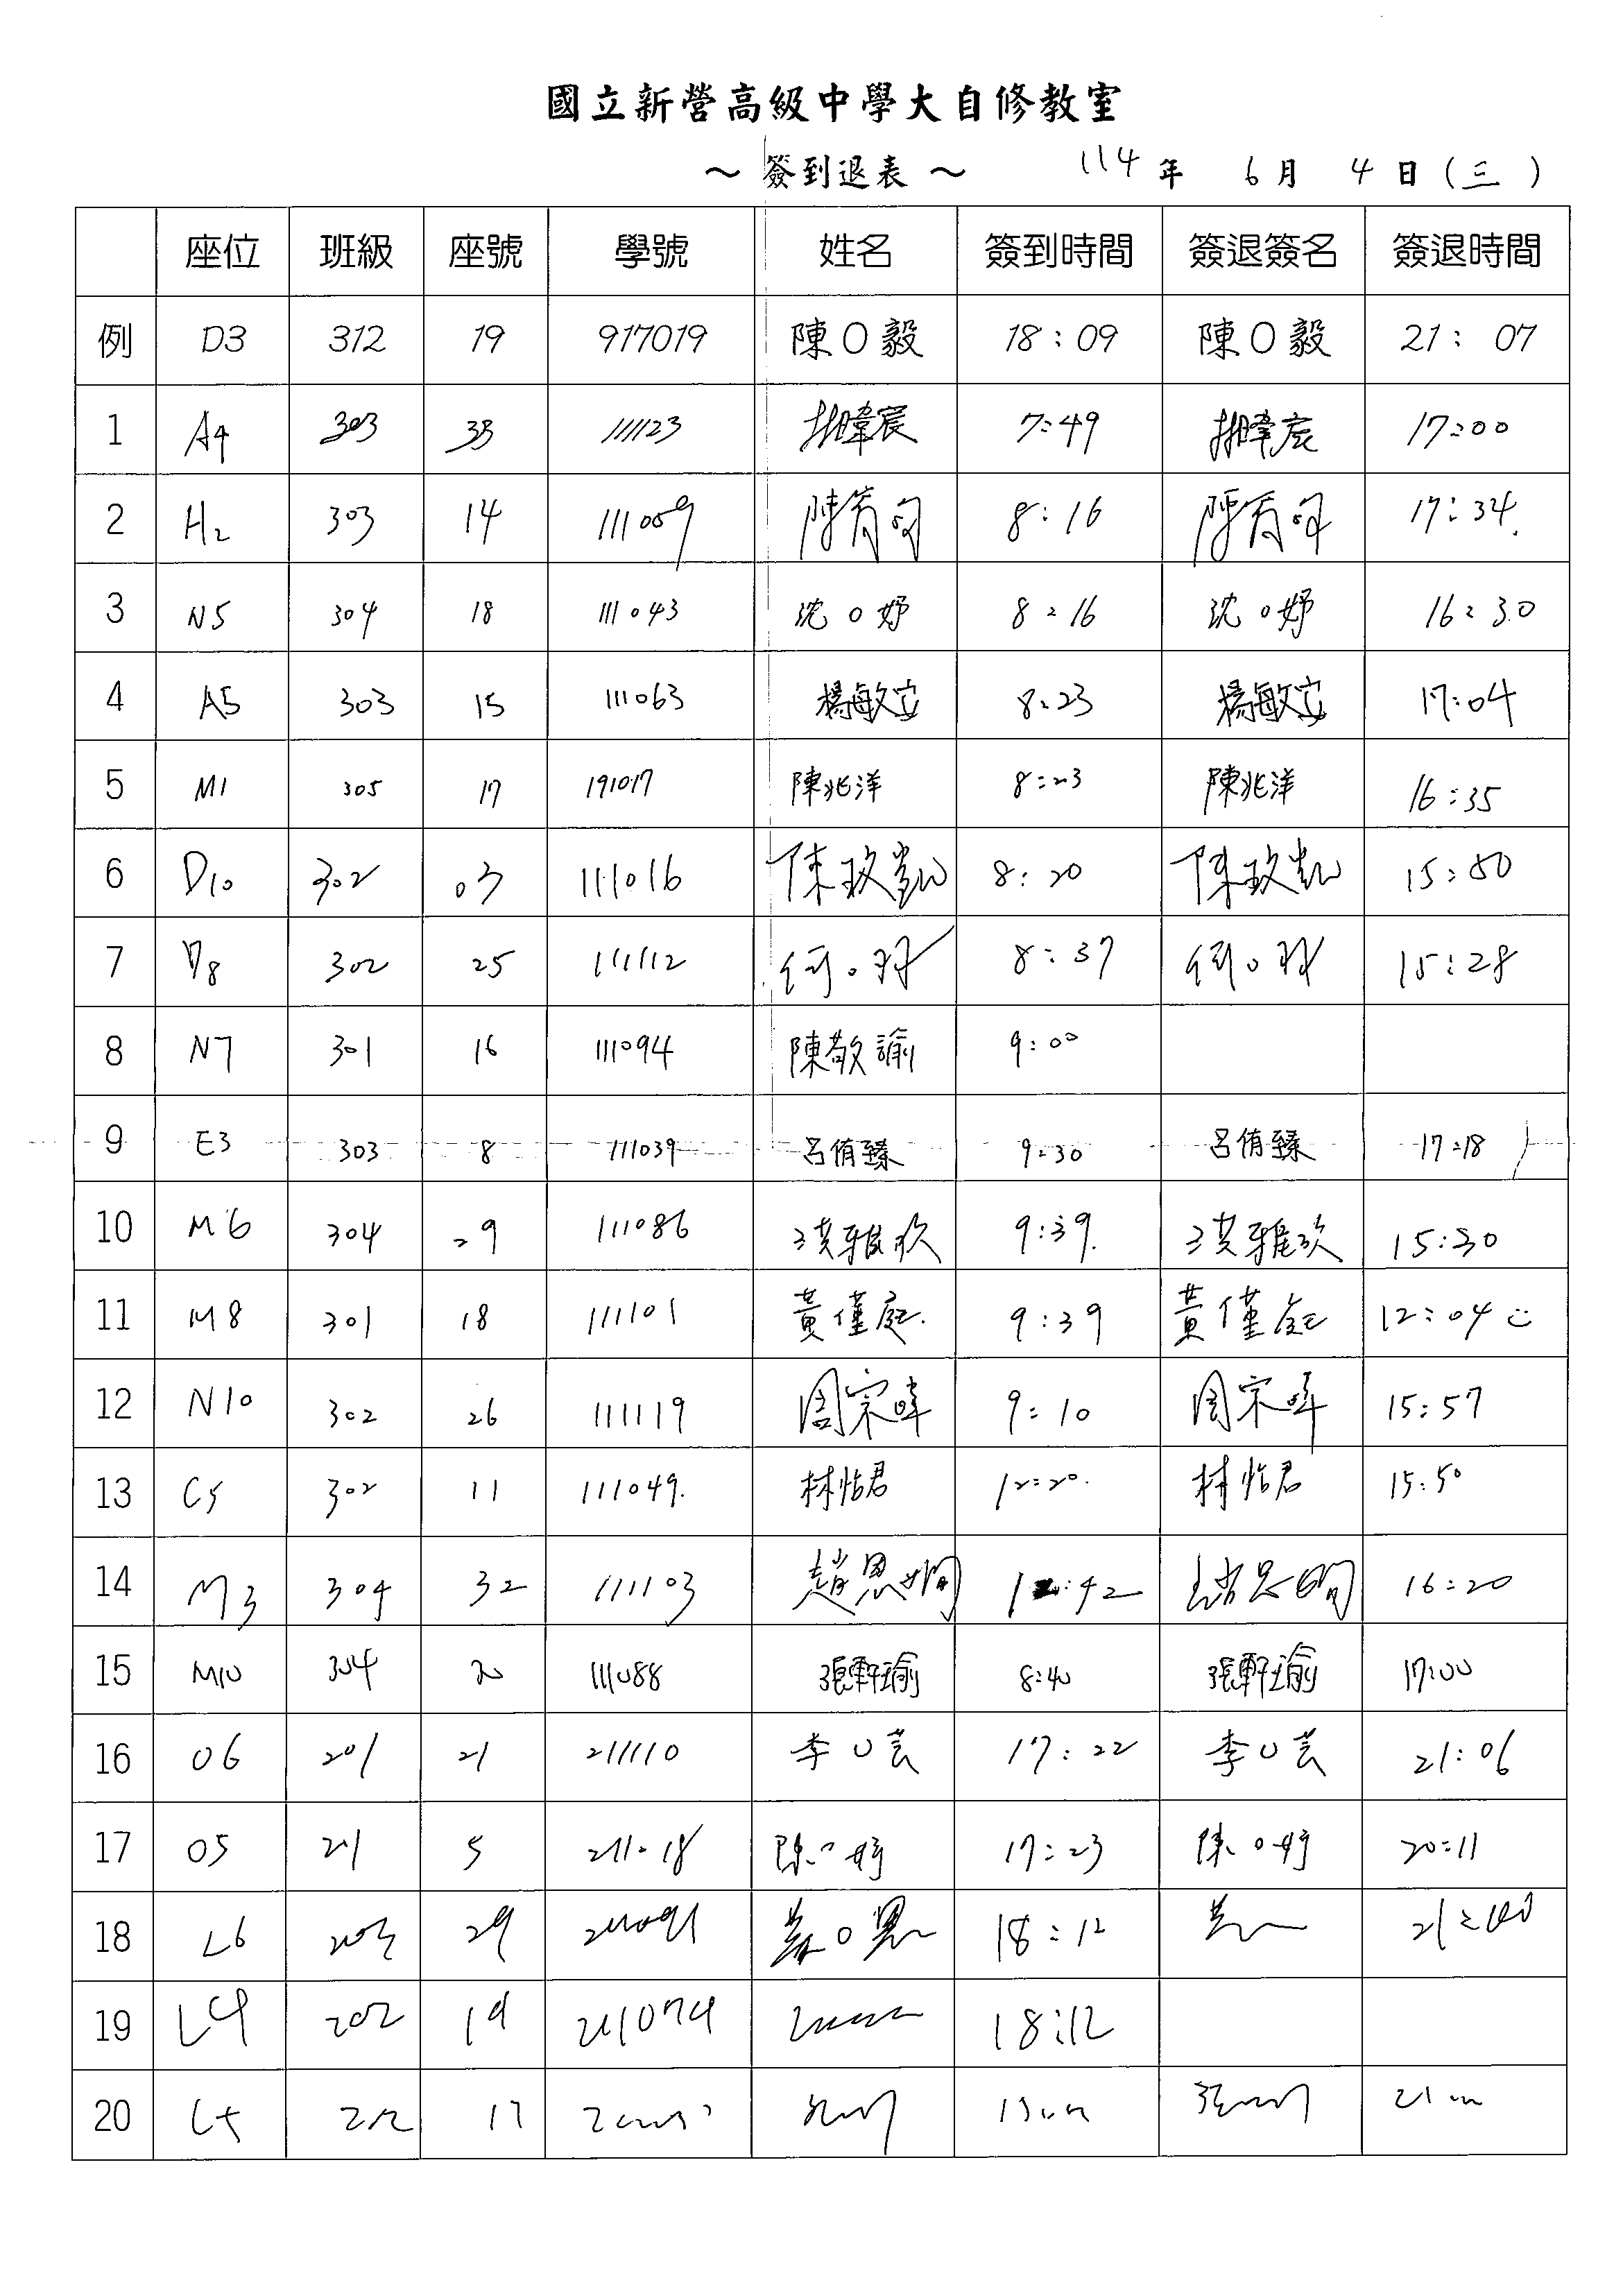 國立新營高級中學大自修教室
～ 簽到退表 ～ 114 年 6 月 4 日 (三)
座位 班級 座號 學號 姓名 簽到時間 簽退簽名 簽退時間
例 D3 312 19 917019 陳O毅 18:09 陳O毅 21:07
1 A4 303 33 111123 7:49 17:00
2 H2 303 14 111059 8:16 17:34
3 N5 304 18 111043 沈O妤 8:16 沈O妤 16:30
4 A5 303 15 111063 楊敏安 8:23 楊敏安 17:04
5 M1 305 17 191017 陳兆洋 8:23 陳兆洋 16:35
6 D10 302 03 111016 陳玟凱 8:20 陳玟凱 15:50
7 D8 302 25 111112 8:37 15:28
8 N7 301 16 111094 陳敬諭 9:00
9 E3 303 8 111039 呂侑臻 9:30 呂侑臻 17:18
10 M6 304 29 111086 洪雅玟 9:39 洪雅玟 15:30
11 M8 301 18 111101 黃僅庭 9:39 黃僅庭 12:04
12 N10 302 26 111119 周宗暐 9:10 周宗暐 15:57
13 C5 302 11 111049 林怡君 12:20 林怡君 15:50
14 M3 304 32 111103 趙思嫺 16:20
15 M10 304 111088 張軒瑜 8:40 張軒瑜 17:00
16 O6 201 21 211110 李O芸 17:22 李O芸 21:06
17 O5 201 5 211018 陳O婷 17:23 陳O婷 20:11
18 L6 29 18:12 21:00
19 L4 202 19 211074 18:12
20 17